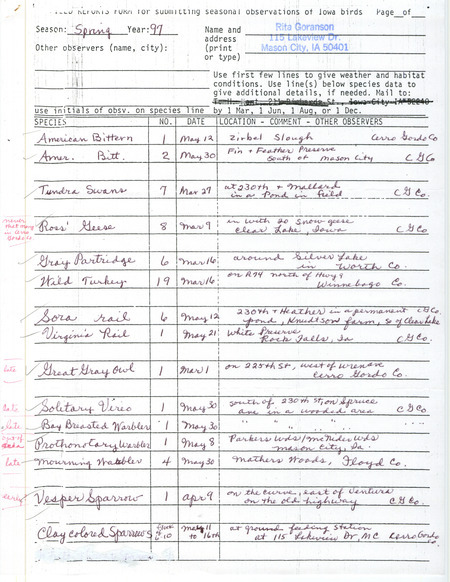 FIELD REPORTS FORM for submitting seasonal observations of Iowa birds Page__of__
Season: Spring Year: 97
Name and address (print or type)
Rita Goranson
115 Lakeview Dr.
Mason City, IA 50401
Other observers (name, city):
Use first few lines to give weather and habitat
conditions. Use line(s) below species data to
give additional details, if needed. Mail to:
use initials of obsv. on species line by 1 Mar, 1 Jun, 1 Aug, or 1 Dec.
SPECIES NO. DATE LOCATION - COMMENT - OTHER OBSERVERS
American Bittern 1 May 12 Zirbel Slough Cerro Gordo Co
Amer. Bitt. 2 May 30 Fin + Feather Preserve
South of Mason City C G Co
Tundra Swans 7 Mar 27 at 230th + Mallard
in a Pond in field C G Co.
Ross' Geese 8 Mar 9 in with 20 Snow geese
Clear Lake, Iowa C G Co.
Gray Partridge 6 Mar 16 around Silver Lake
in Worth Co.
Wild Turkey 19 Mar 16 on R74 north of Hwy 9
Winnebago Co.
Sora rail 6 May 12 230th + Heather in a permanent C G Co.
pond, Knudtson farm, S of Clear Lake
Virginia Rail 1 May 21 White Preserve
Rock Falls, Ia C G Co.
late Great Gray Owl 1 Mar 1 on 225th St, west of Wren Ave
Cerro Gordo Co.
late Solitary Vireo 1 May 30 South of 230th St on Spruce
ave in a wooded area C G Co
late Bay Breasted Warbler 1 May 30 " " " "
Prothonotary Warbler 1 May 8 Parkers Wds/McNider Wds
Mason City, Ia.
late Mourning Warbler 4 May 30 Mathers Woods, Floyd Co.
early Vesper Sparrow 1 Apr 9 on the curve, east of Ventura
on the old highway C G Co.
Clay colored Sparrows 10 May 11 to 16th at ground feeding station
at 115 Lakeview Dr, MC Cerro Gordo Co